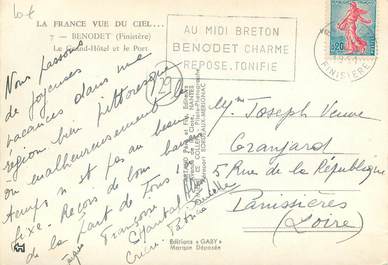 10€
LA FRANCE VUE DU CIEL...
7 - BENODET (Finistère)
Le Grand-Hôtel et le Port
AU MIDI BRETON
BENODET CHARME
REPOSE.TONIFIE
0,20
FINISTÈRE
29
Nous passons
de joyeuses
vacances dans une
région bien pittoresque
où malheureusement le
temps n'est pas au beau
fixe. Recevez de bons baisers
de la part de tous
Françoise
Chantal
Patrice
Mme Joseph Veuve
Granjard
5 Rue de la République
Panissières
(Loire)
Editions "GABY"
Marque Déposée